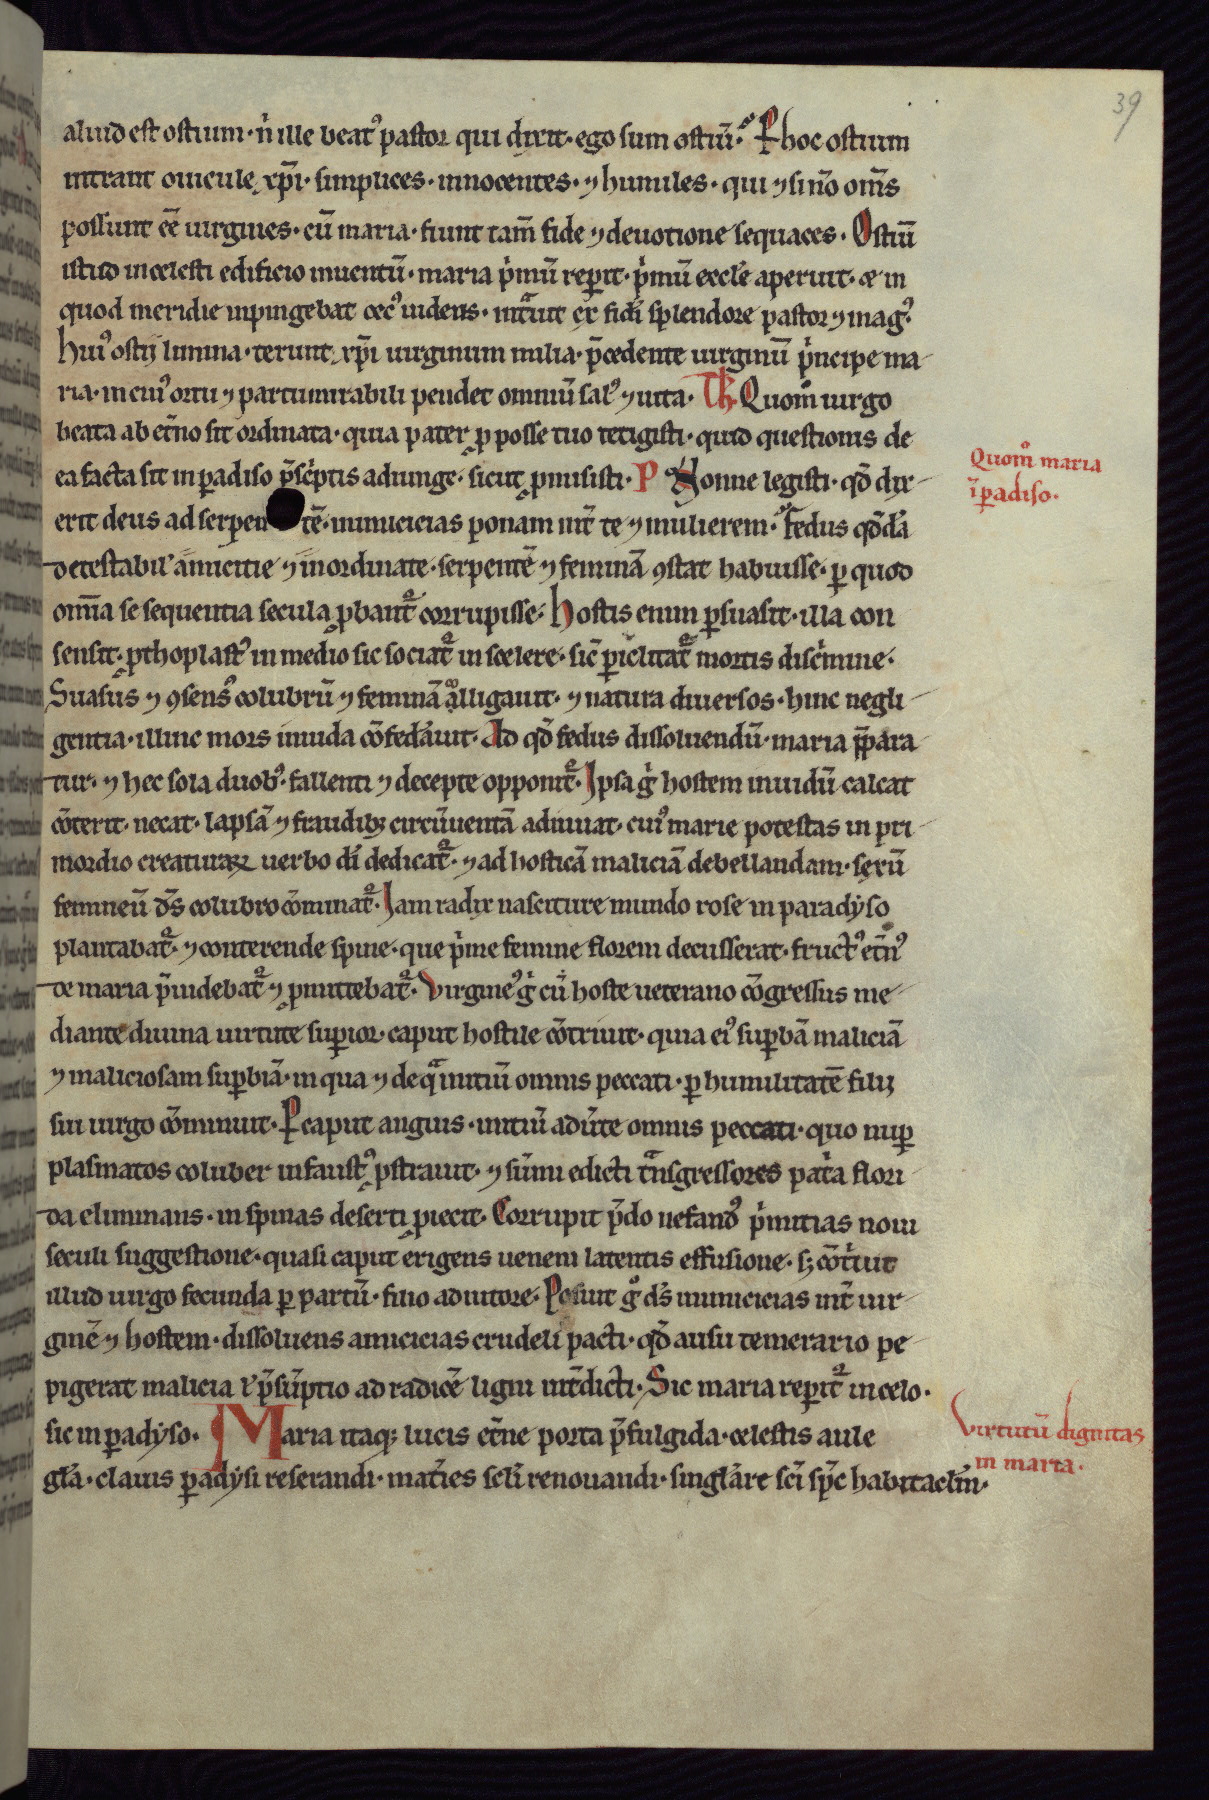 39
aliud est ostium· ñ ille beatꝰ pastor qui dixit· ego sum ostiū· Ꝑ hoc ostium
intrant ouicule xp̄i· simplices· innocentes· ⁊ humiles· qui ⁊ si nō om̄s
possunt eē uirgines· cū maria· fiunt tam̄ fide ⁊ deuotione sequaces· Ostiū
istud in celesti edificio inuentū· maria pͥmū repperit· pͥmū eccl̄e aperuit· et in
quod meridie inpingebat cecꝰ uidens· intᷓuit ex fidei splendore pastor ⁊ mag̃ꝰ
Huiꝰ ostij limina· terunt xp̄i uirginum milia· p̄cedente uirginū pͥncipe ma
ria· in cuiꝰ ortu ⁊ partu mirabili pendet omniū salꝰ ⁊ uita· Th̄· Quom̊ uirgo
beata ab et̄no sit ordinata· quia pater ꝓ posse tuo tetigisti· quid questionis de
ea facta sit in ꝑadiso p̄scͥptis adiunge· sicut ꝓmisisti· P Nonne legisti· qd̄ dix
Quom̊ maria
ī ꝑadiso·
erit deus ad serpentē· inimicicias ponam int̄ te ⁊ mulierem· Fedus qd̄dā
detestabil' amicitie ⁊ inordinate· serpentē ⁊ feminā ꝯstat habuisse· ꝑ quod
omīa se sequentia secula ꝓbant᷑ corrupisse· Hostis enim ꝑsuasit· illa con
sensit· ꝓthoplastꝰ in medio sic sociat᷑ in scelere· sic̄ ꝑiclitat᷑ mortis discͥmine·
Suasus ⁊ ꝯsensꝰ colubrū ⁊ feminā alligauit· ⁊ natura diuersos· hinc negli
gentia· illinc mors inuida cōfedāuit· Ad qd̄ fedus dissoluendū· maria p̄para
tur· ⁊ hec sola duobꝰ· fallenti ⁊ decepte opponit᷑· Ipsa gͥ hostem inuidū calcat
cōterit· necat· lapsā ⁊ fraudibꝫ circūuentā adiuuat· cuiꝰ marie potestas in pri
mordio creaturaꝝ uerbo dī dedicat᷑· ⁊ ad hosticā maliciā debellandam· sexū
femineū ds̄ colubro cōminat᷑· Iam radix nasciture mundo rose in paradyso
plantabat᷑· ⁊ conterende spine· que pͥme femine florem decusserat· fructꝰ et̄nꝰ
de maria p̄uidebat᷑ ⁊ ꝓmittebat᷑· Virgineꝰ gͥ cū hoste ueterano cōgressus me
diante diuina uirtute superior caput hostile cōtriuit· quia eiꝰ suꝑbā maliciā
⁊ maliciosam suꝑbiā· in qua ⁊ de qᷓ initiū omnis peccati· ꝑ humilitatē filij
sui uirgo cōminuit· Ꝑ caput anguis· initiū aduͥte omnis peccati· quo nuꝑ
plasmatos coluber infaustꝰ ꝓstrauit· ⁊ sūmi edicti tᷓnsgressores patͥa flori
da eliminans· in spinas deserti ꝓiecit· Corrupit p̄do nefandꝰ pͥmitias noui
seculi suggestione· quasi caput erigens ueneni latentis effusione· sꝫ cōtͥuit
illud uirgo fecunda ꝑ partū· filio adiutore· Posuit g̊ ds̄ inimicicias int̄ uir
ginē ⁊ hostem· dissoluens amicicias crudeli pacti· qd̄ ausu temerario pe
pigerat malicia ⁊ p̄sūptio ad radicē ligni int̄dicti· Sic maria reperit᷑ in celo·
sic in ꝑadyso· Maria itaqꝫ lucis et̄ne porta p̄fulgida· celestis aule
Virtutū dignitas
in maria·
gl̄a· clauis ꝑadysi reserandi· mat̄ies scl̄i renouandi· singl̄are sci̅ sp̄c habitacl̄m·